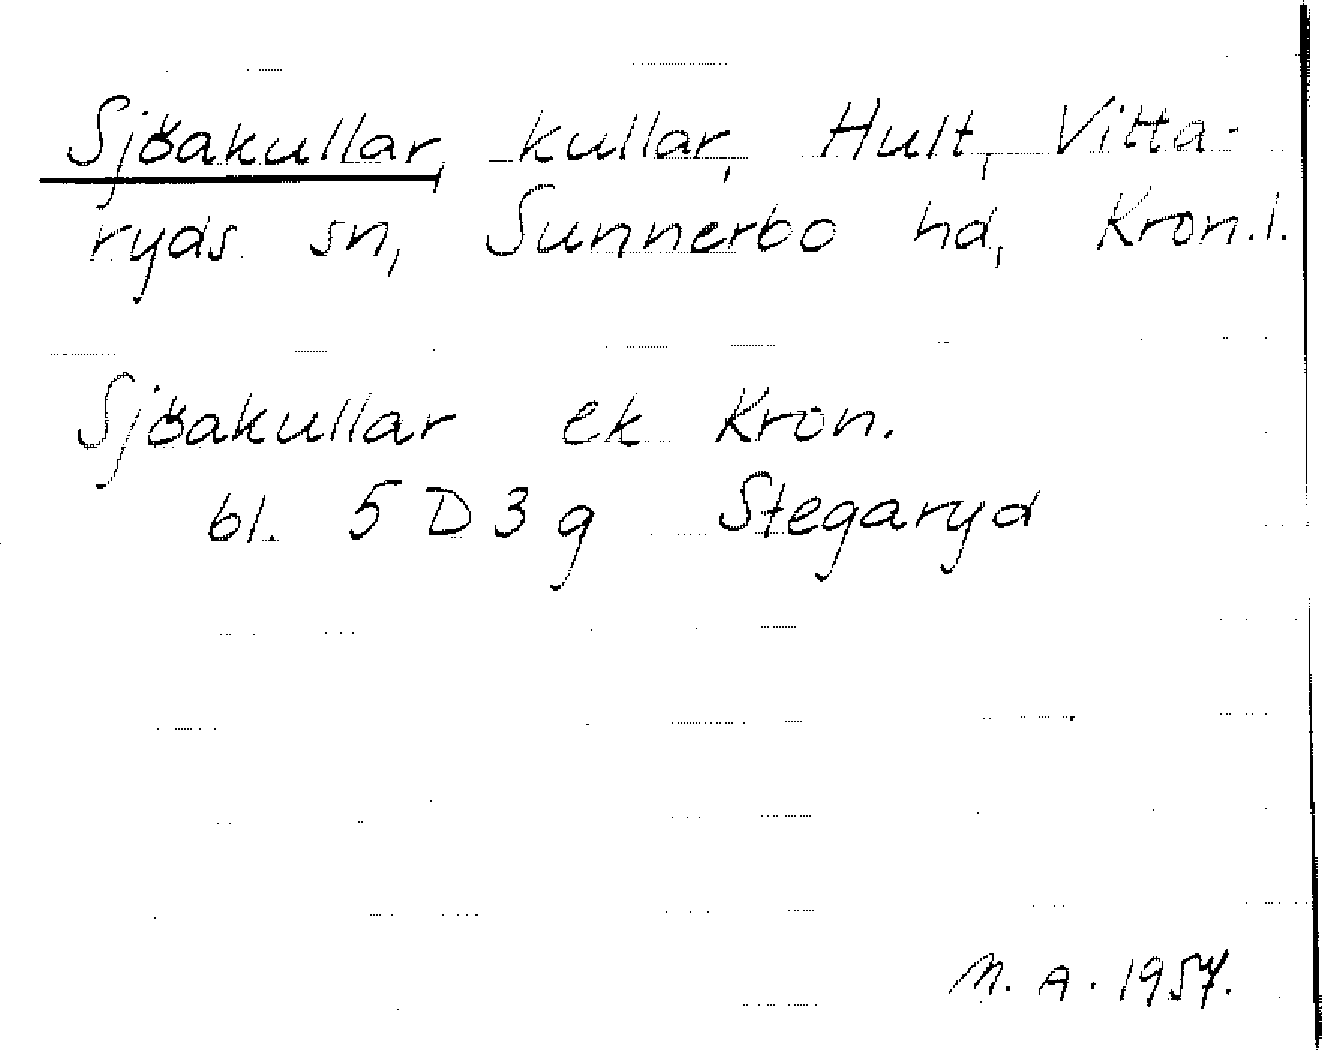 Sjöakullar, kullar, Hult, Vitta-
ryds sn, Sunnerbo hd, Kron.l.
Sjöakullar ek Kron.
bl. 5 D 3 g Stegaryd
M. A. 1957.